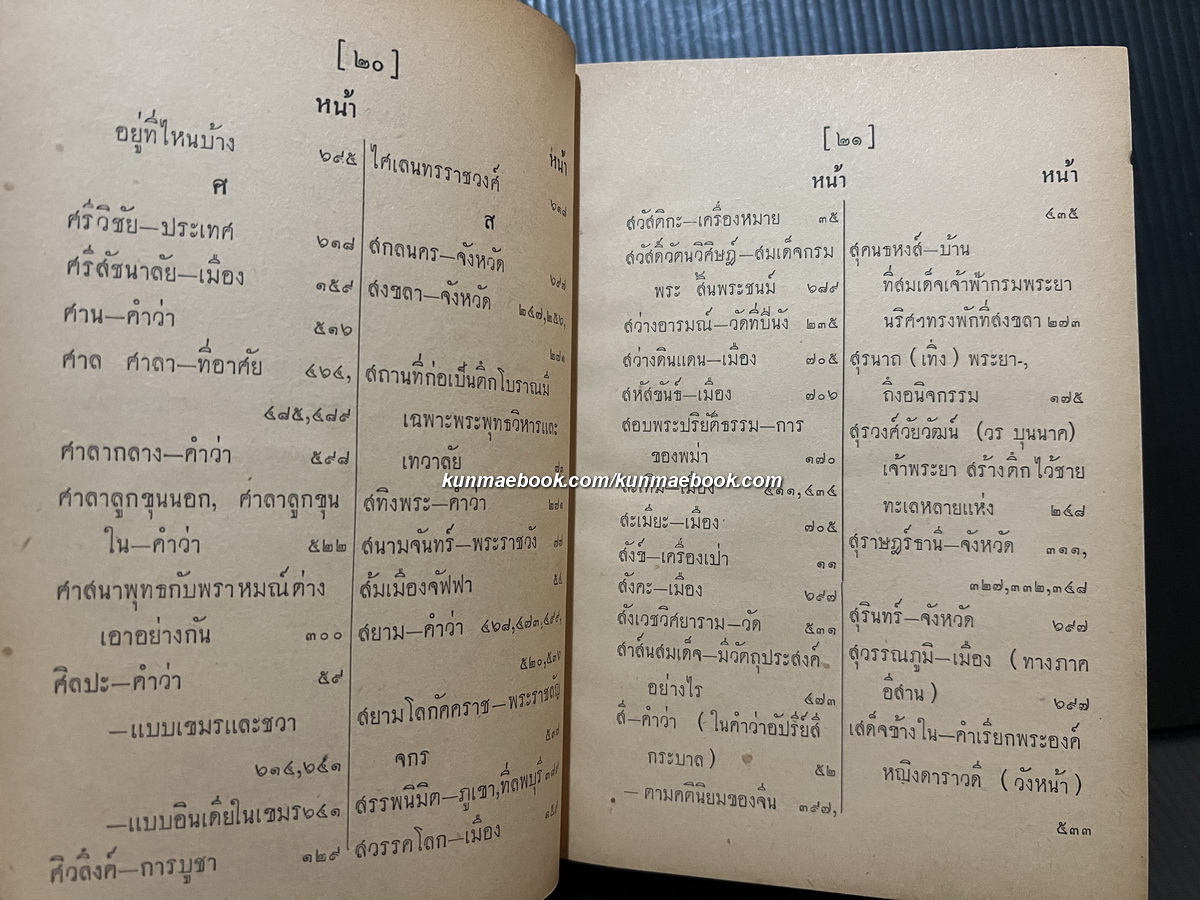 [ ๒๐ ]
หน้า
อยู่ที่ไหนบ้าง ๖๙๕
ศ
ศรีวิชัย—ประเทศ ๖๑๘
ศรีสัชนาลัย—เมือง ๑๕๙
ศาน—คำว่า ๕๑๖
ศาล ศาลา—ที่อาศัย ๔๖๔,
๔๘๕,๔๘๙
ศาลากลาง—คำว่า ๕๙๘
ศาลาลูกขุนนอก, ศาลาลูกขุน
ใน—คำว่า ๕๒๒
ศาสนาพุทธกับพราหมณ์ต่าง
เอาอย่างกัน ๓๐๐
ศิลปะ—คำว่า ๕๙
—แบบเขมรและชวา
๖๑๔,๖๔๑
—แบบอินเดียในเขมร ๖๔๑
ศิวลึงค์—การบูชา ๑๒๙
หน้า
ไศเลนทรราชวงศ์ ๖๑๘
ส
สกลนคร—จังหวัด ๖๙๘
สงขลา—จังหวัด ๒๔๗,๒๕๖,
๒๗๑
สถานที่ก่อเป็นตึกโบราณมี
เฉพาะพระพุทธวิหารและ
เทวาลัย
สทิงพระ—คำว่า ๒๗๑
สนามจันทร์—พระราชวัง
ส้มเมืองจัฟฟา
สยาม—คำว่า ๔๖๘,๔๗๓,๔๙๙,
๕๒๐,๕๓๖
สยามโลกัคคราช—พระราชลัญ
จกร
สรรพนิมิต—ภูเขา,ที่ลพบุรี
สวรรคโลก—เมือง
[ ๒๑ ]
หน้า
สวัสดิกะ—เครื่องหมาย ๓๕
สวัสดิ์วัดนวิศิษฎ์—สมเด็จกรม
พระ สิ้นพระชนม์ ๖๘๙
สว่างอารมณ์—วัดที่ปีนัง ๒๓๕
สว่างดินแดน—เมือง ๗๐๕
สหัสขันธ์—เมือง ๗๐๖
สอบพระปริยัติธรรม—การ
ของพม่า ๑๗๐
สะเทิม—เมือง ๔๑๑,๔๓๔
สะเมียะ—เมือง ๗๐๕
สังข์—เครื่องเป่า ๑๑
สังคะ—เมือง ๖๙๗
สังเวชวิศยาราม—วัด ๕๓๑
สาส์นสมเด็จ—มีวัตถุประสงค์
อย่างไร ๔๗๓
สี่—คำว่า (ในคำว่าอัปรีย์สี่
กระบาล) ๕๒
—ตามคตินิยมของจีน ๓๙๗,
หน้า
๔๓๕
สุคนธหงส์—บ้าน
ที่สมเด็จเจ้าฟ้ากรมพระยา
นริศฯทรงพักที่สงขลา ๒๗๓
สุรนาถ (เทิ่ง) พระยา-,
ถึงอนิจกรรม ๑๗๕
สุรวงศ์วัยวัฒน์ (วร บุนนาค)
เจ้าพระยา สร้างตึกไว้ชาย
ทะเลหลายแห่ง ๒๔๘
สุราษฎร์ธานี—จังหวัด ๓๑๑,
๓๒๗,๓๓๒,๓๔๘
สุรินทร์—จังหวัด ๖๙๗
สุวรรณภูมิ—เมือง (ทางภาค
อีสาน) ๖๙๗
เสด็จข้างใน—คำเรียกพระองค์
หญิงดาราวดี (วังหน้า)
๕๓๓
kunmaebook.com/kunmaebook.com